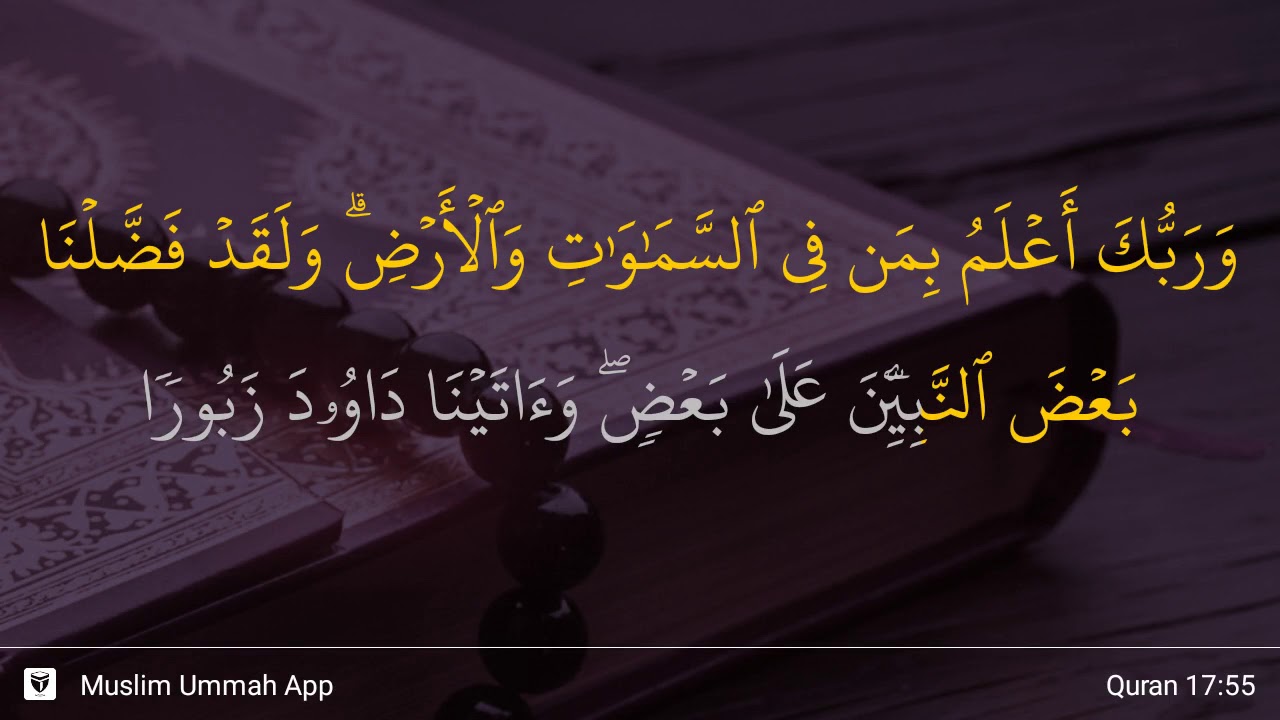 وَرَبُّكَ أَعْلَمُ بِمَن فِى ٱلسَّمَـٰوَٰتِ وَٱلْأَرْضِ ۗ وَلَقَدْ فَضَّلْنَا
بَعْضَ ٱلنَّبِيِّـۧنَ عَلَىٰ بَعْضٍ ۖ وَءَاتَيْنَا دَاوُۥدَ زَبُورًا
Muslim Ummah App
Quran 17:55